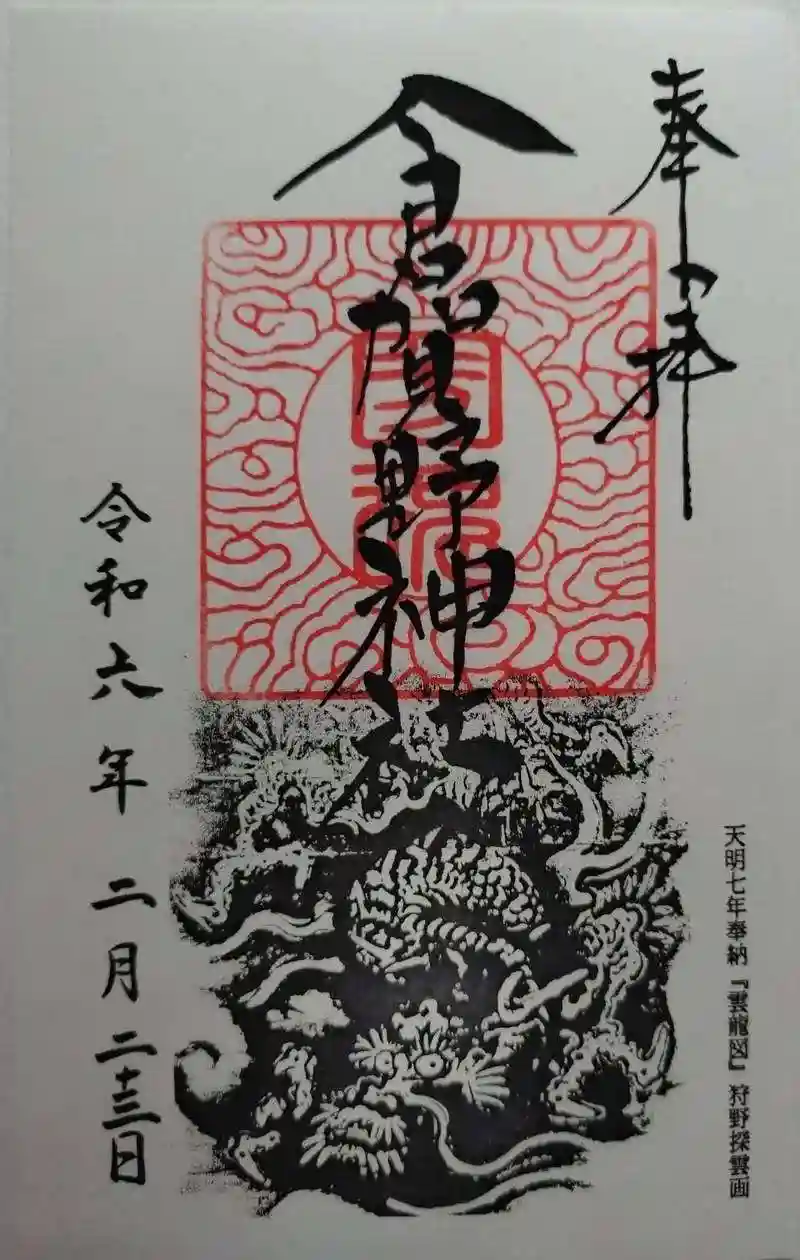 奉拝
倉賀野神社
令和六年二月二十三日
天明七年奉納『雲龍図』狩野探雲画